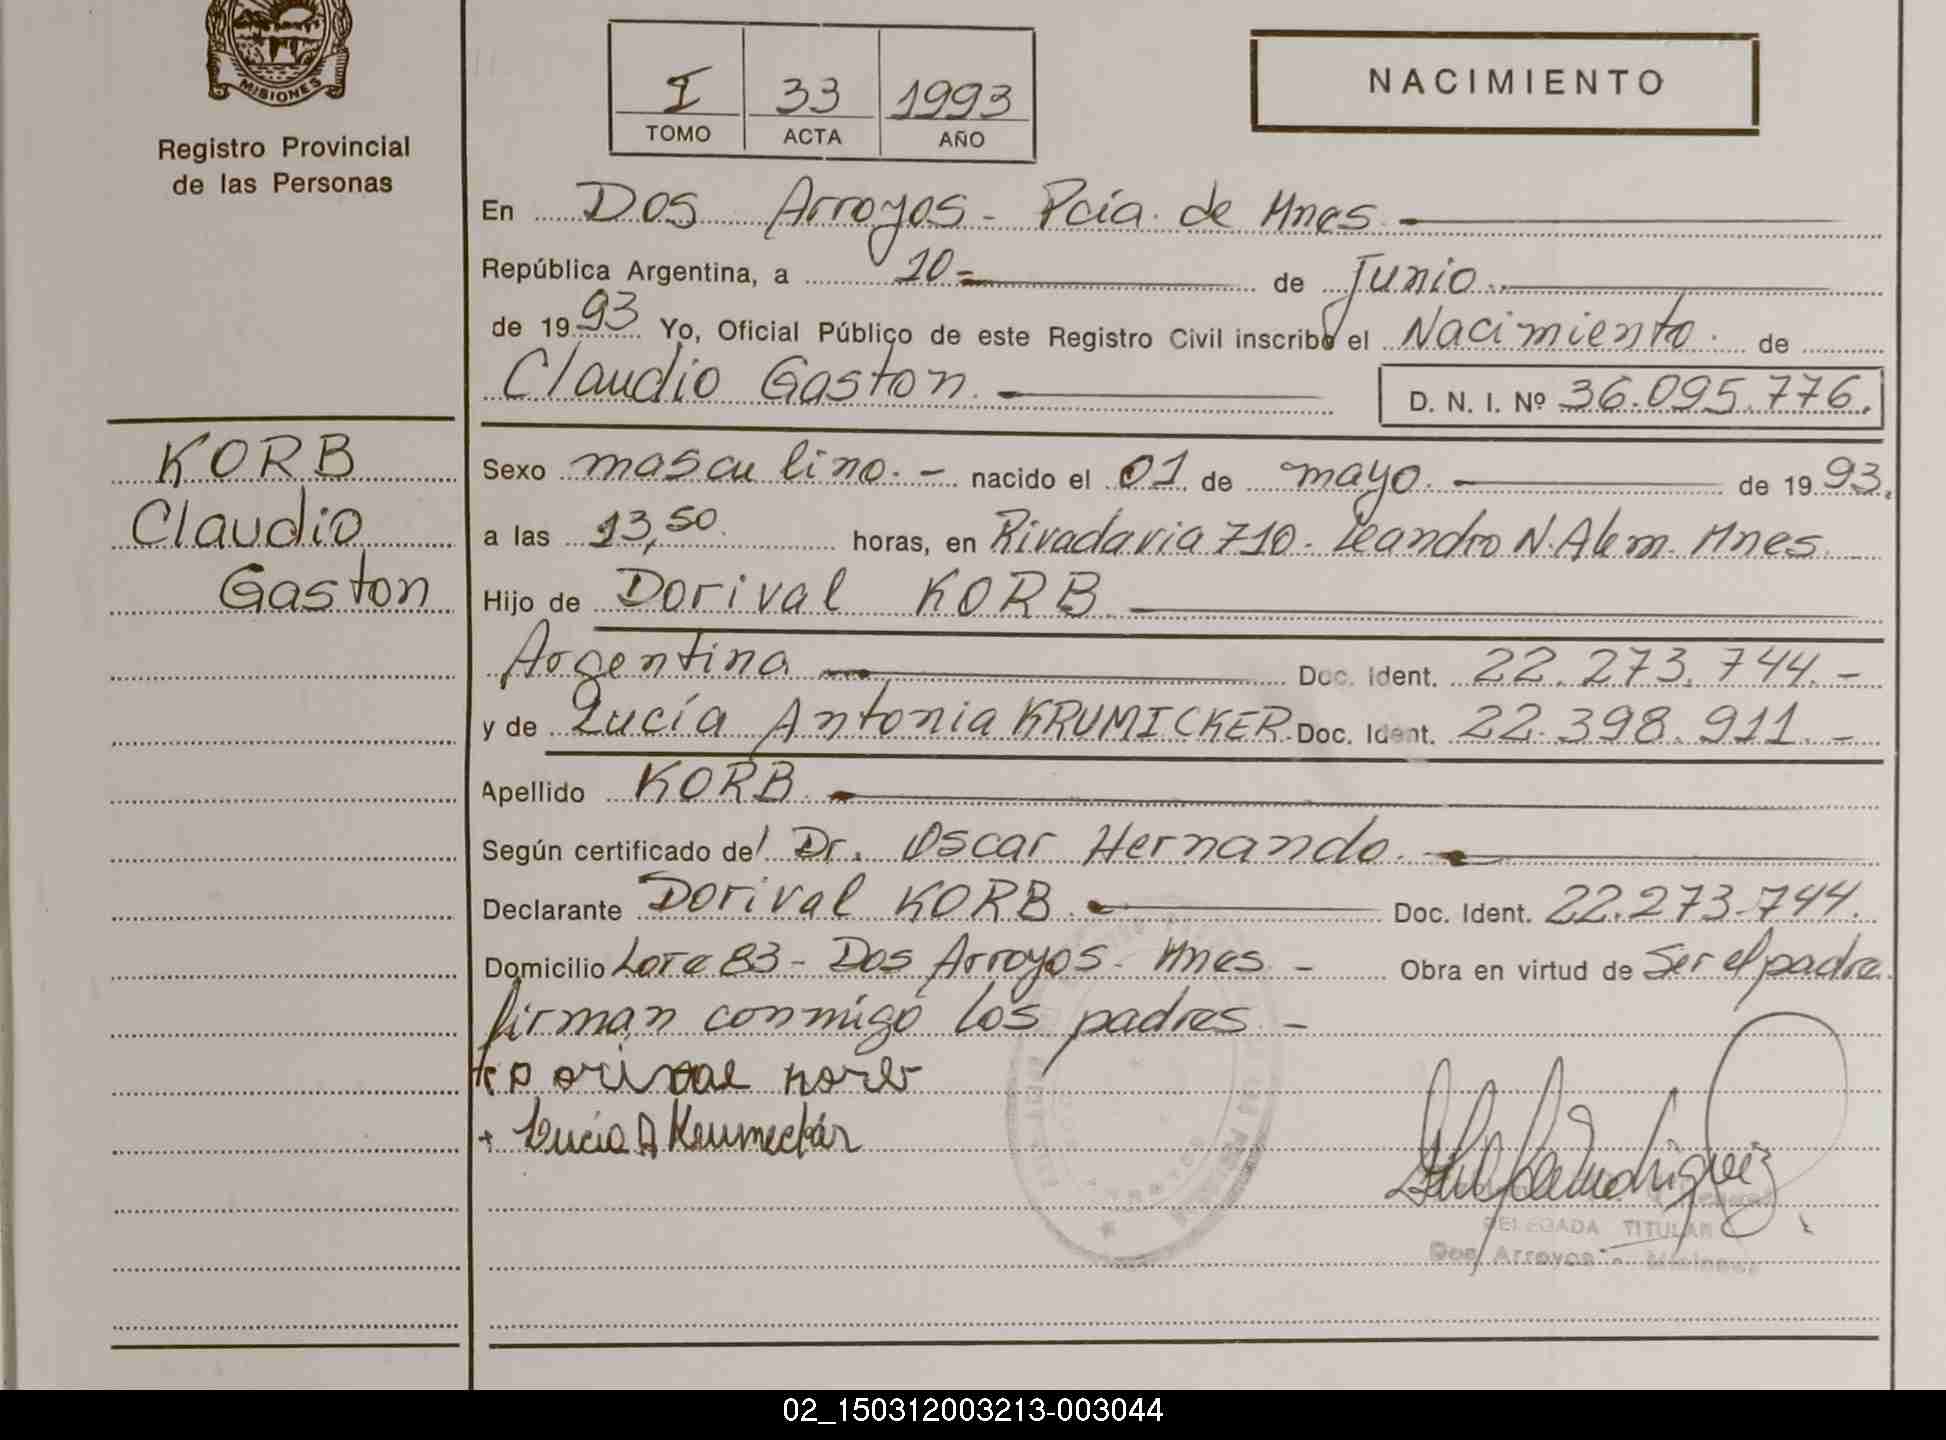 MISIONES
Registro Provincial
de las Personas
I 33 1993
TOMO ACTA AÑO
NACIMIENTO
En Dos Arroyos - Pcia. de Mnes -
República Argentina, a 10- de Junio
de 1993 Yo, Oficial Público de este Registro Civil inscribo el Nacimiento. de
Claudio Gaston. D. N. I. Nº 36.095.776.
KORB
Claudio
Gaston
Sexo masculino. - nacido el 01 de mayo. de 1993.
a las 13,50. horas, en Rivadavia 710. Leandro N. Alem. Mnes.
Hijo de Dorival KORB
Argentina Doc. Ident. 22.273.744. -
y de Lucía Antonia KRUMICKER Doc. Ident. 22.398.911. -
Apellido KORB
Según certificado del Dr. Oscar Hernando.
Declarante Dorival KORB. Doc. Ident. 22.273.744.
Domicilio Lote 83 - Dos Arroyos - Mnes - Obra en virtud de Ser el padre.
firman conmigo los padres -
Dorival Korb
Lucia A
DELEGADA TITULAR
Dos Arroyos - Misiones
02_150312003213-003044